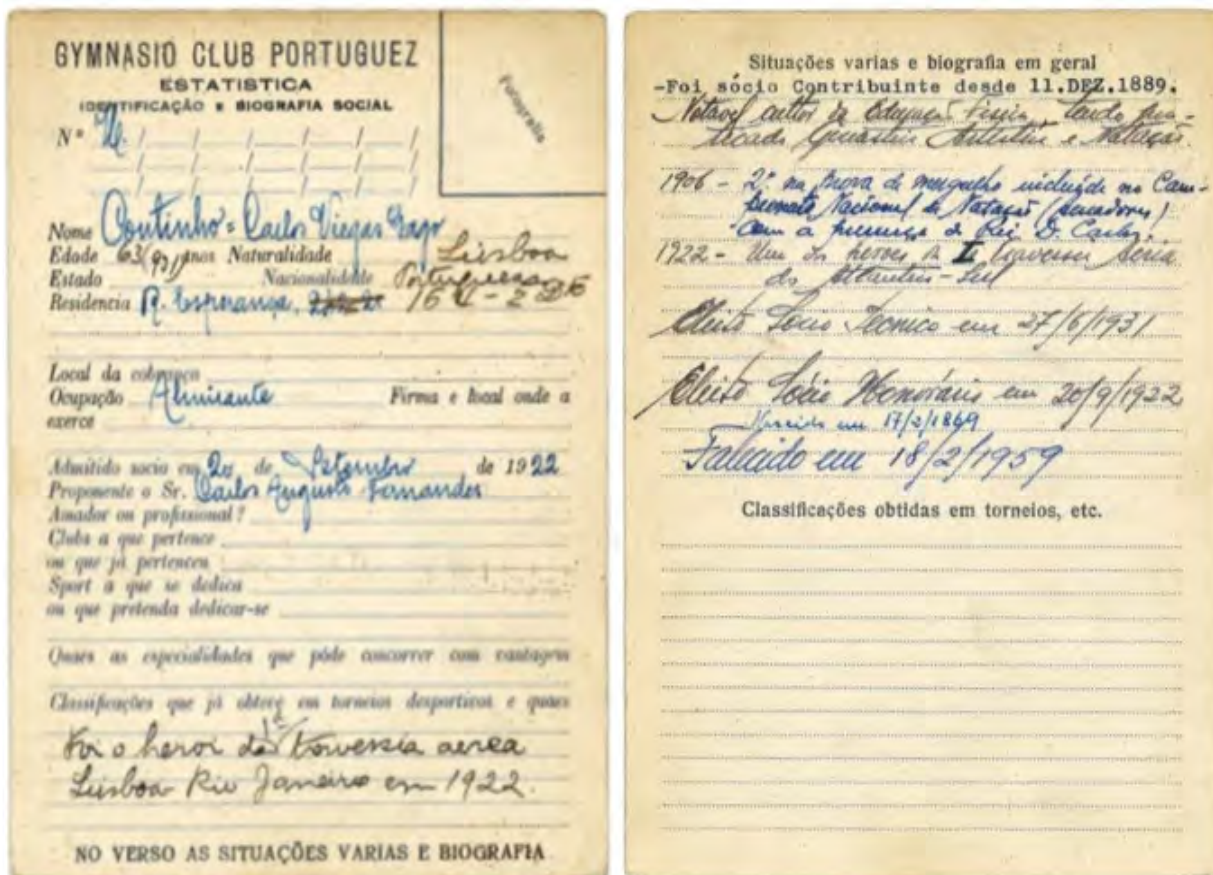 GYMNASIO CLUB PORTUGUEZ
ESTATISTICA
IDENTIFICAÇÃO E BIOGRAFIA SOCIAL
Fotografia
Nº
Nome Coutinho = Carlos Viegas Gago
Edade 63 (931) anos Naturalidade Lisboa
Estado Nacionalidade Portuguesa
Residencia R. Esperança,
Local da cobrança
Ocupação Almirante Firma e local onde a
exerce
Admitido socio em 20 de Setembro de 1922
Proponente o Sr. Carlos Augusto Fernandes
Amador ou profissional?
Clubs a que pertence
ou que já pertenceu
Sport a que se dedica
ou que pretenda dedicar-se
Quaes as especialidades que póde concorrer com vantagem
Classificações que já obteve em torneios desportivos e quaes
Foi o heroi da 1ª travessia aerea
Lisboa Rio Janeiro em 1922.
NO VERSO AS SITUAÇÕES VARIAS E BIOGRAFIA
Situações varias e biografia em geral
-Foi sócio Contribuinte desde 11.DEZ.1889.
Notavel cultor da Educação Fisica, tendo pra-
ticado Ginastica e Natação.
1906 - 2º na prova de mergulho incluida no Cam-
peonato Nacional de Natação (amadores)
com a presença do Rei D. Carlos.
1922 - Um dos heroes da I Travessia Aérea
do Atlantico-Sul
Eleito Socio Tecnico em 27/6/1931
Eleito Sócio Honorário em 20/9/1922
Nascido em 17/2/1869
Falecido em 18/2/1959
Classificações obtidas em torneios, etc.